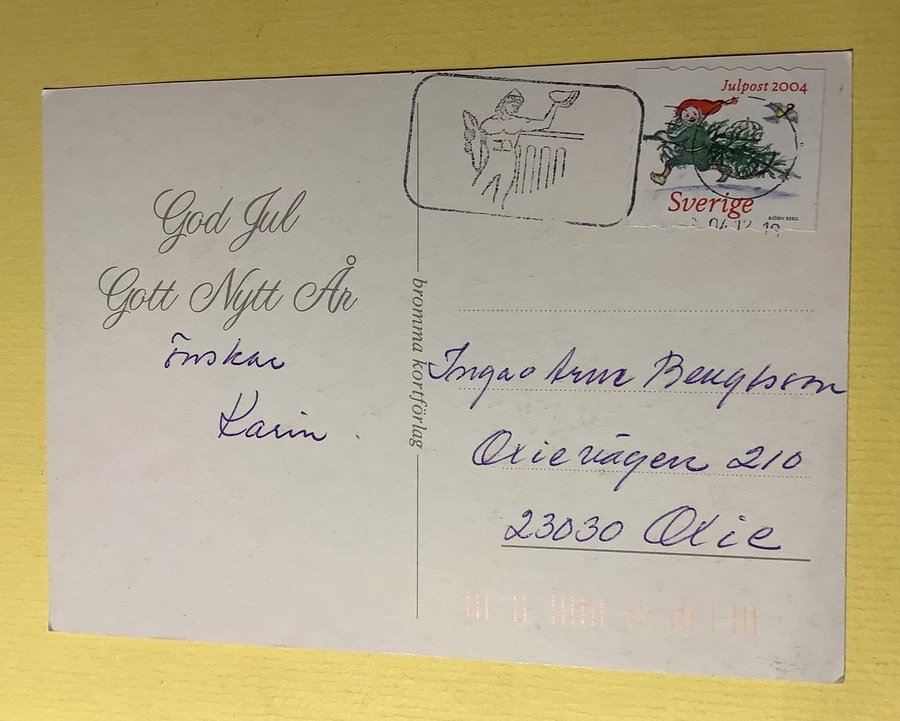 God Jul
Gott Nytt År
önskar
Karin.
bromma kortförlag
Julpost 2004
Sverige
BJÖRN BERG
Inga o Arne Bengtsson
Oxievägen 210
23030 Oxie